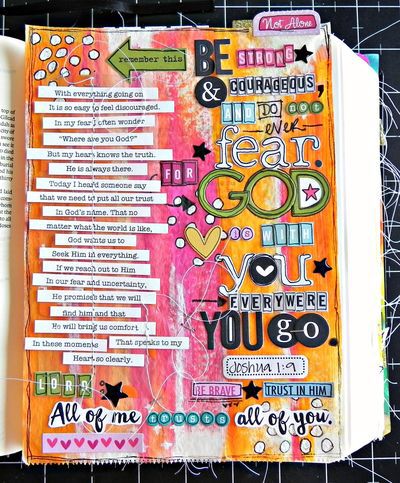 Not Alone
remember this
With everything going on
It is so easy to feel discouraged.
In my fear I often wonder
"Where are you God?"
But my heart knows the truth.
He is always there.
Today I heard someone say
that we need to put all our trust
In God's name. That no
matter what the world is like,
God wants us to
Seek Him in everything.
If we reach out to Him
In our fear and uncertainty,
He promises that we will
find him and that
He will bring us comfort
In these moments That speaks to my
Heart so clearly.
BE STRONG
& COURAGEOUS,
AND DO not
EVER
fear.
FOR GOD
is WITH
you
EVERYWERE
YOU go.
Joshua 1:9
LORD
BE BRAVE TRUST IN HIM
All of me trusts all of you.